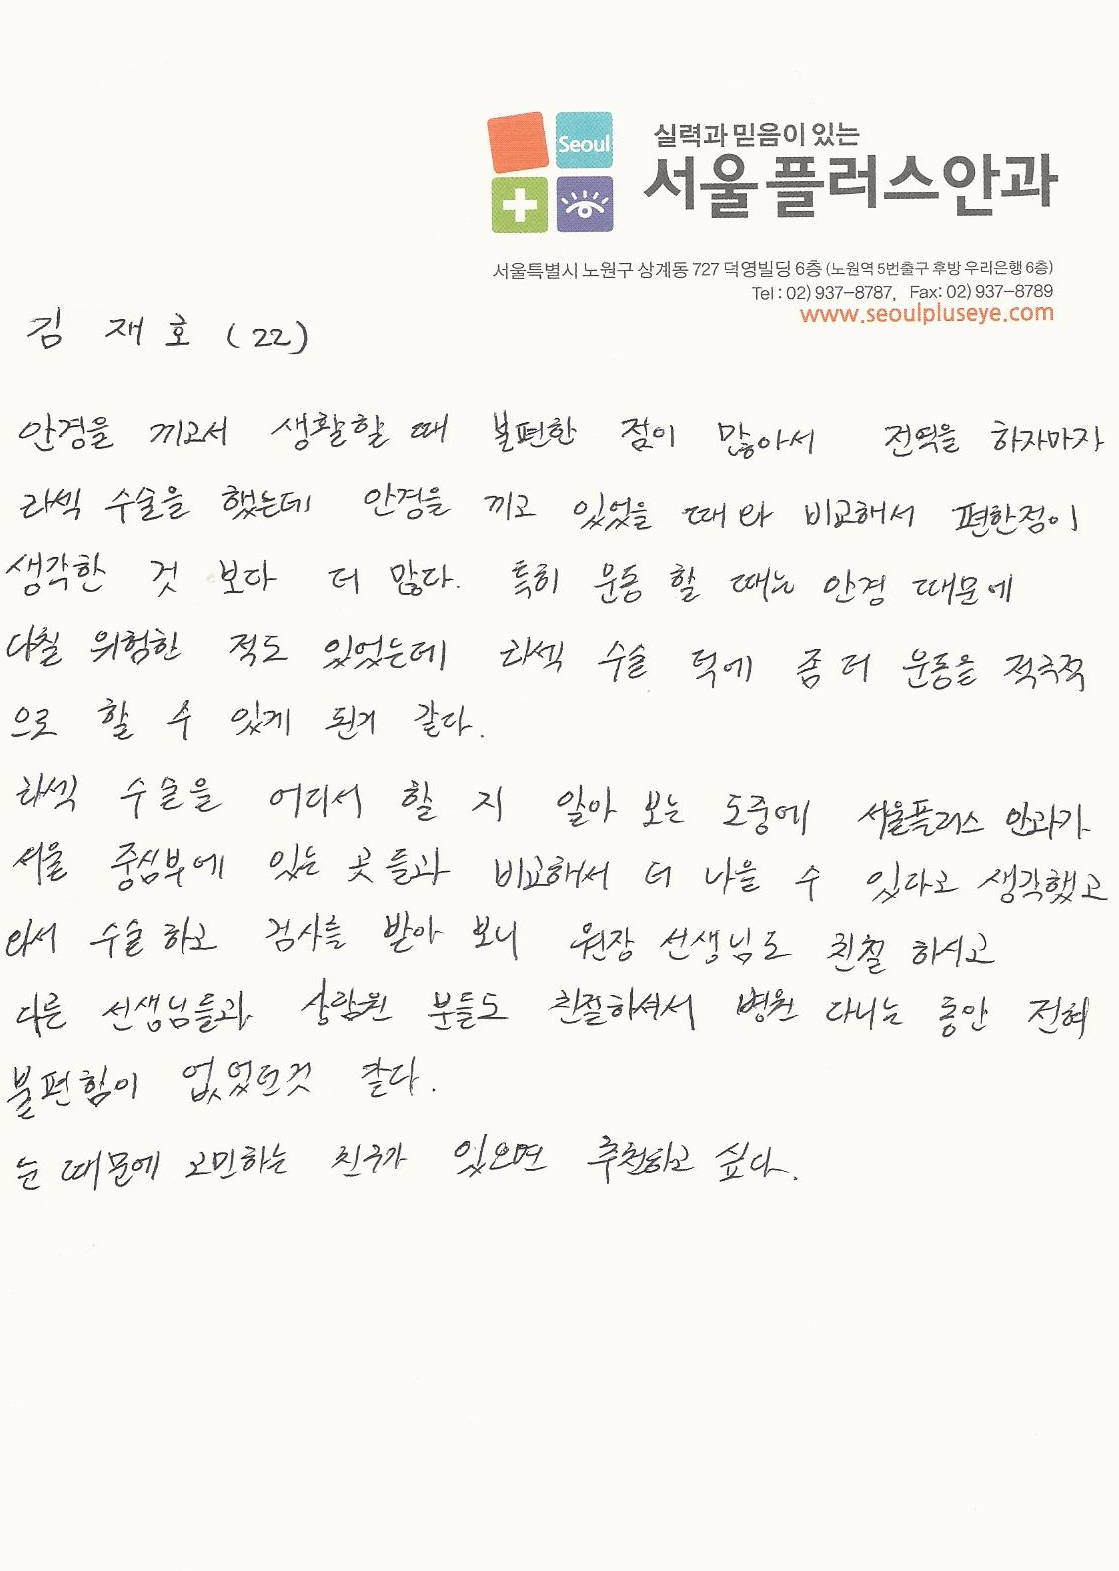 Seoul
실력과 믿음이 있는
서울플러스안과
서울특별시 노원구 상계동 727 덕영빌딩 6층 (노원역 5번출구 후방 우리은행 6층)
Tel : 02) 937-8787, Fax: 02) 937-8789
www.seoulpluseye.com
김 재 호 (22)
안경을 끼고서 생활할 때 불편한 점이 많아서 전역을 하자마자
라섹 수술을 했는데 안경을 끼고 있었을 때와 비교해서 편한점이
생각한 것 보다 더 많다. 특히 운동 할 때는 안경 때문에
다칠 위험한 적도 있었는데 라섹 수술 덕에 좀 더 운동을 적극적
으로 할 수 있게 된거 같다.
라섹 수술을 어디서 할 지 알아 보는 도중에 서울플러스 안과가
서울 중심부에 있는 곳들과 비교해서 더 나을 수 있다고 생각했고
와서 수술하고 검사를 받아 보니 원장 선생님도 친절 하시고
다른 선생님들과 상담원 분들도 친절하셔서 병원 다니는 동안 전혀
불편힘이 없었던것 같다.
눈 때문에 고민하는 친구가 있으면 추천하고 싶다.